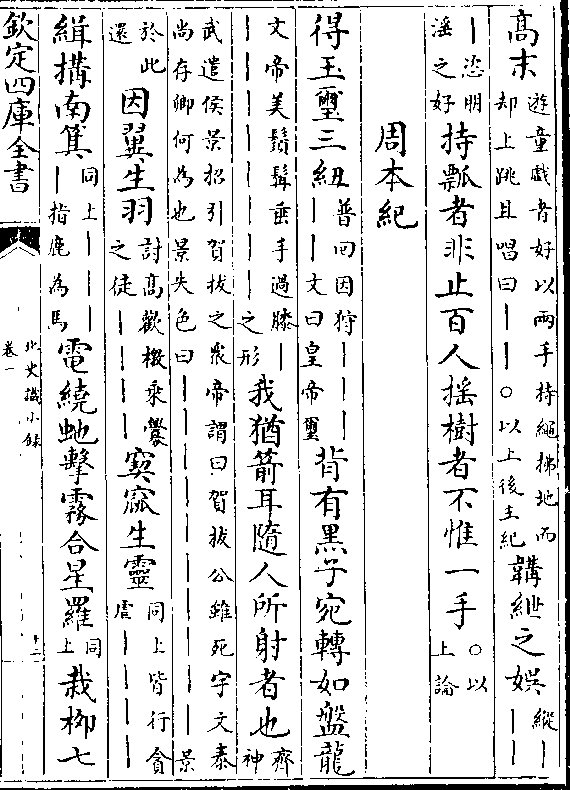 髙末 遊童戲者好以兩手持繩拂地而却上跳且唱曰｜｜○以上後主紀 鞲紲之娛 縱｜｜｜
｜恣朋淫之好 持瓢者非止百人揺樹者不惟一手 ○以上論
周本紀
得玉璽三紐 普回因狩｜｜｜｜｜｜文曰皇帝璽 背有黒子宛轉如盤龍
文帝美鬚髯垂手過膝｜｜｜｜｜｜｜｜｜之形 我猶箭耳隨人所射者也 齊神
武遣侯景招引賀拔之衆帝謂曰賀拔公雖死宇文泰尚存卿何為也景失色曰｜｜｜｜｜｜｜｜｜景
於此還 因翼生羽 討髙歡檄乗釁之徒｜｜｜｜ 窫窳生靈 同上皆行貪虐｜｜｜｜
緝搆南箕 同上｜｜｜｜｜指鹿為馬 電繞虵擊霧合星羅 同上 栽栁七
欽定四庫全書
北史識小録
卷一
十二